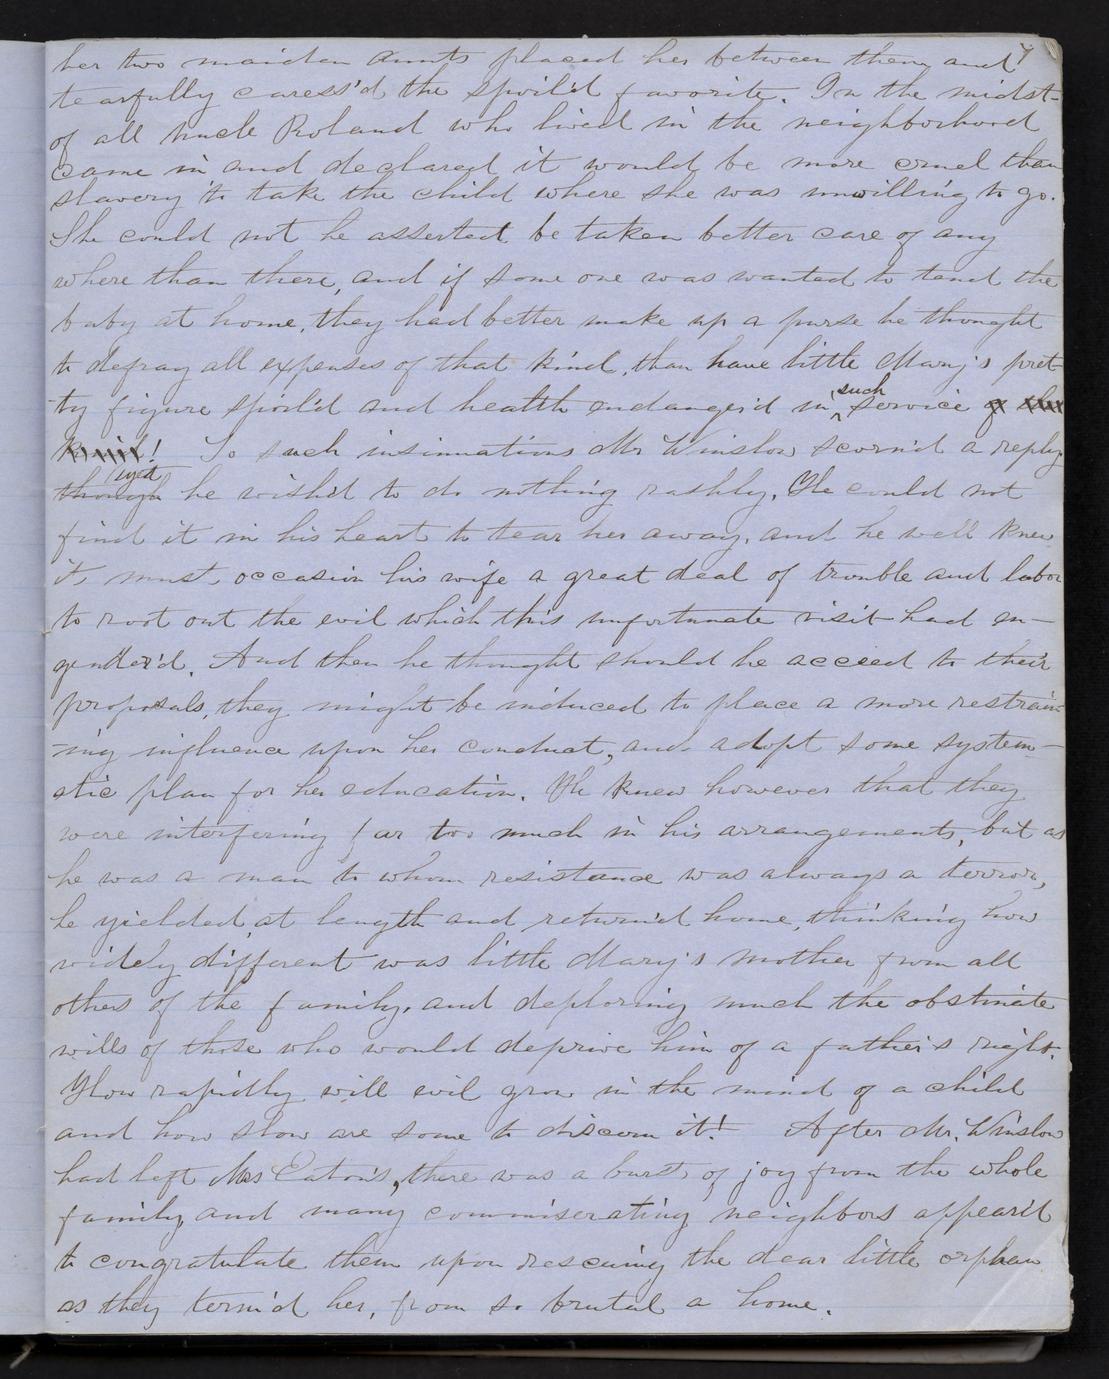 7
her two maiden aunts placed her between them and
tearfully caress'd the spoil'd favorite. In the midst
of all Uncle Roland who lived in the neighborhood
came in and declared it would be more cruel than
slavery to take the child where she was unwilling to go.
She could not he asserted be taken better care of any
where than there, and if some one was wanted to tend the
baby at home, they had better make up a purse he thought
to defray all expenses of that kind, than have little Mary's pret-
ty figure spoil'd and health endanger'd in such service of
kind! To such insinuations Mr Winslow scorn'd a reply
though yet he wish'd to do nothing rashly. He could not
find it in his heart to tear her away, and he well knew
it must occasion his wife a great deal of trouble and labor
to root out the evil which this unfortunate visit had en-
gender'd. And then he thought should he acceed to their
proposals, they might be induced to place a more restrain-
ing influence upon her conduct, and adopt some system-
atic plan for her education. He knew however that they
were interfering far too much in his arrangements, but as
he was a man to whom resistance was always a terror,
he yielded at length and return'd home, thinking how
widely different was little Mary's mother from all
others of the family, and deploring much the obstinate
wills of those who would deprive him of a father's right.
How rapidly will evil grow in the mind of a child
and how slow are some to discern it! After Mr. Winslow
had left Mrs Eaton's, there was a burst of joy from the whole
family and many commiserating neighbors appear'd
to congratulate them upon rescuing the dear little orphan
as they term'd her, from so brutal a home.